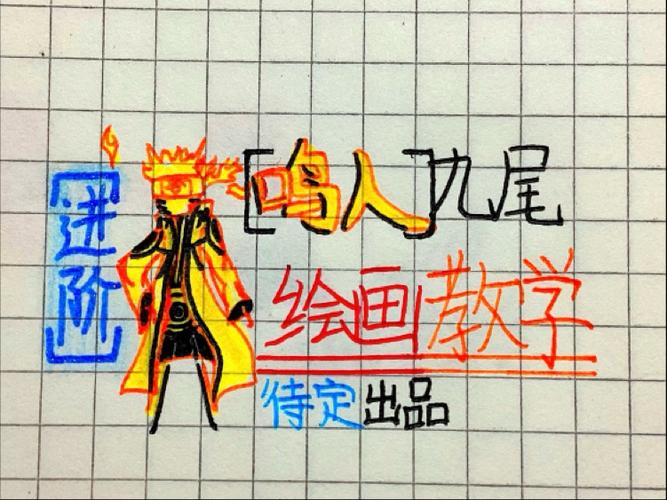 [进阶]
[鸣人]九尾
绘画教学
待定出品